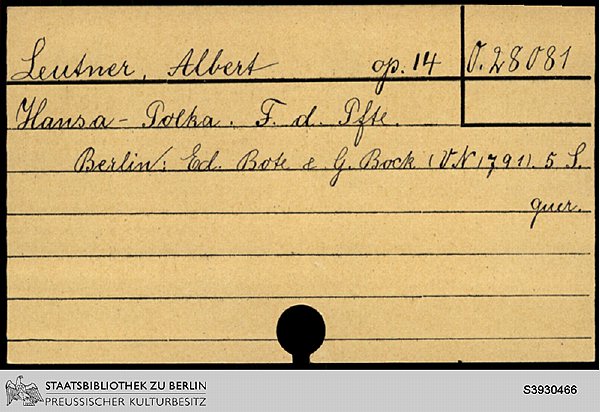 Leutner, Albert op. 14 O. 28081
Hansa - Polka. F. d. Pfte.
Berlin: Ed. Bote & G. Bock (VN 1791). 5 S.
quer.
STAATSBIBLIOTHEK ZU BERLIN
PREUSSISCHER KULTURBESITZ
S3930466